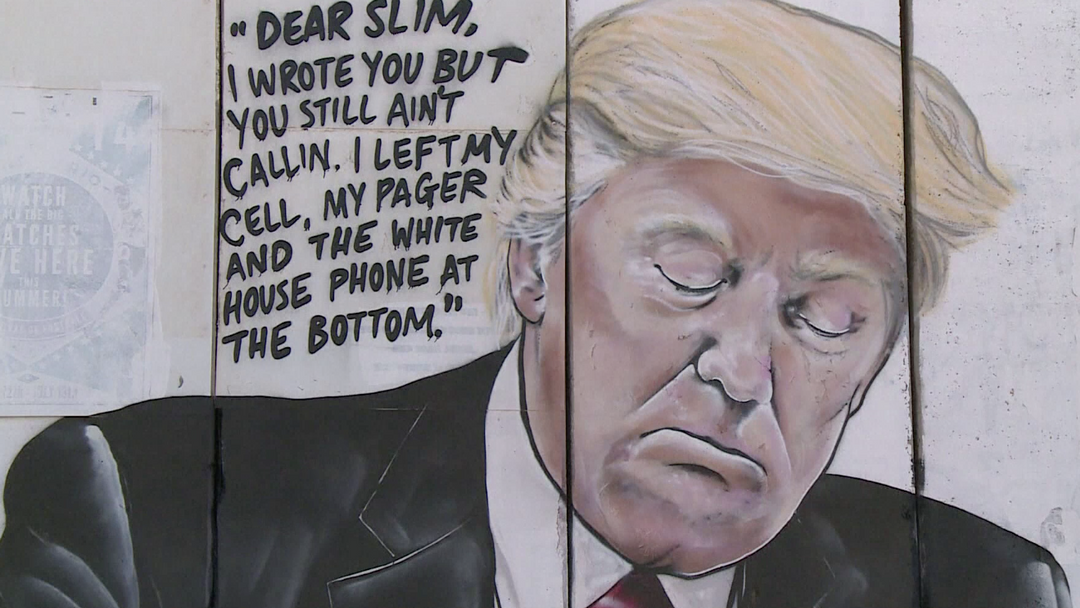 "DEAR SLIM,
I WROTE YOU BUT
YOU STILL AIN'T
CALLIN. I LEFT MY
CELL, MY PAGER
AND THE WHITE
HOUSE PHONE AT
THE BOTTOM."
WATCH
THE BIG
HERE